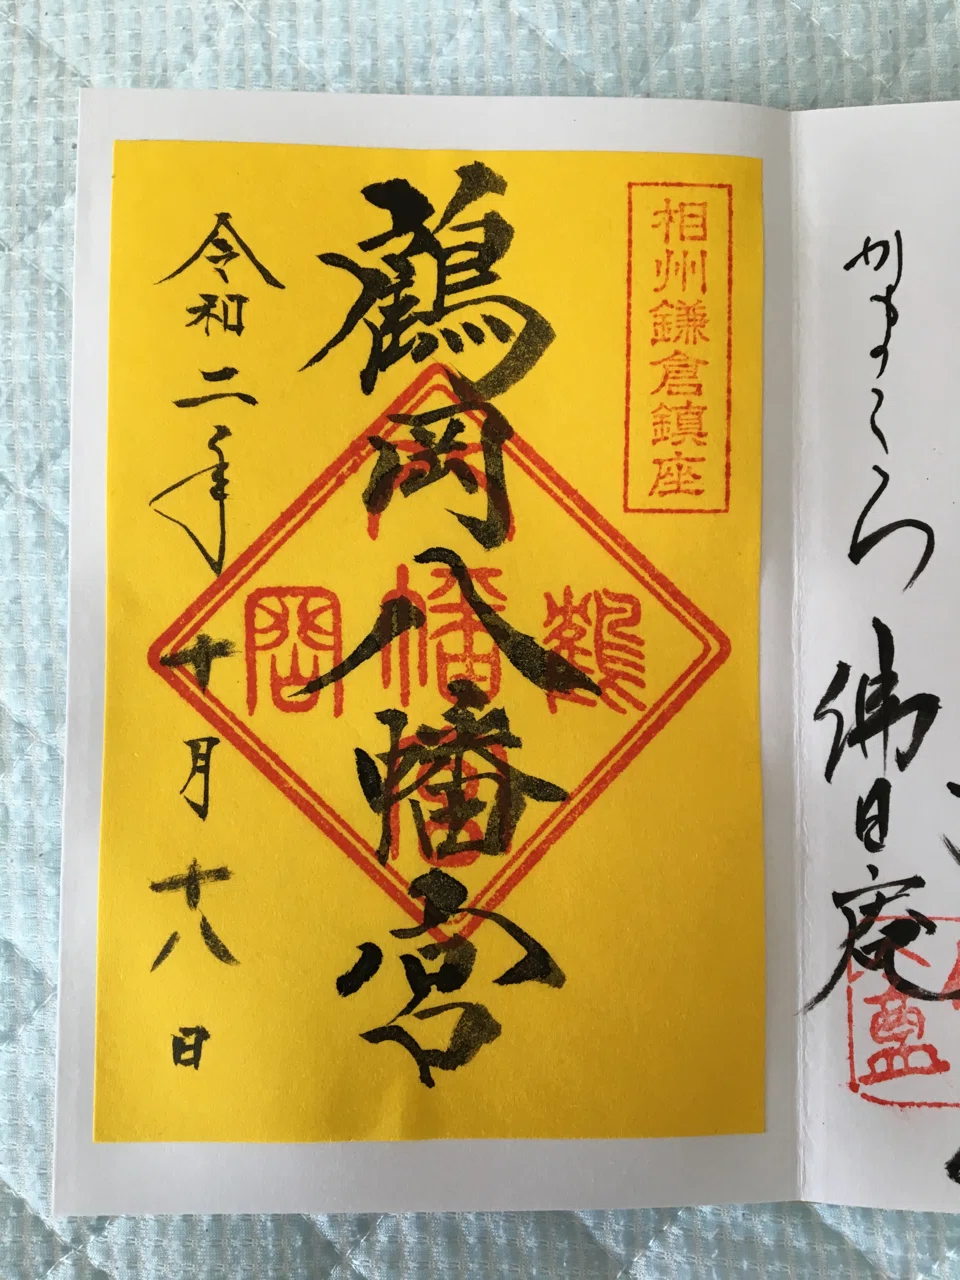 かまくら
佛日庵
相州鎌倉鎮座
鶴岡八幡宮
鶴
幡
岡
令和二年十月十八日